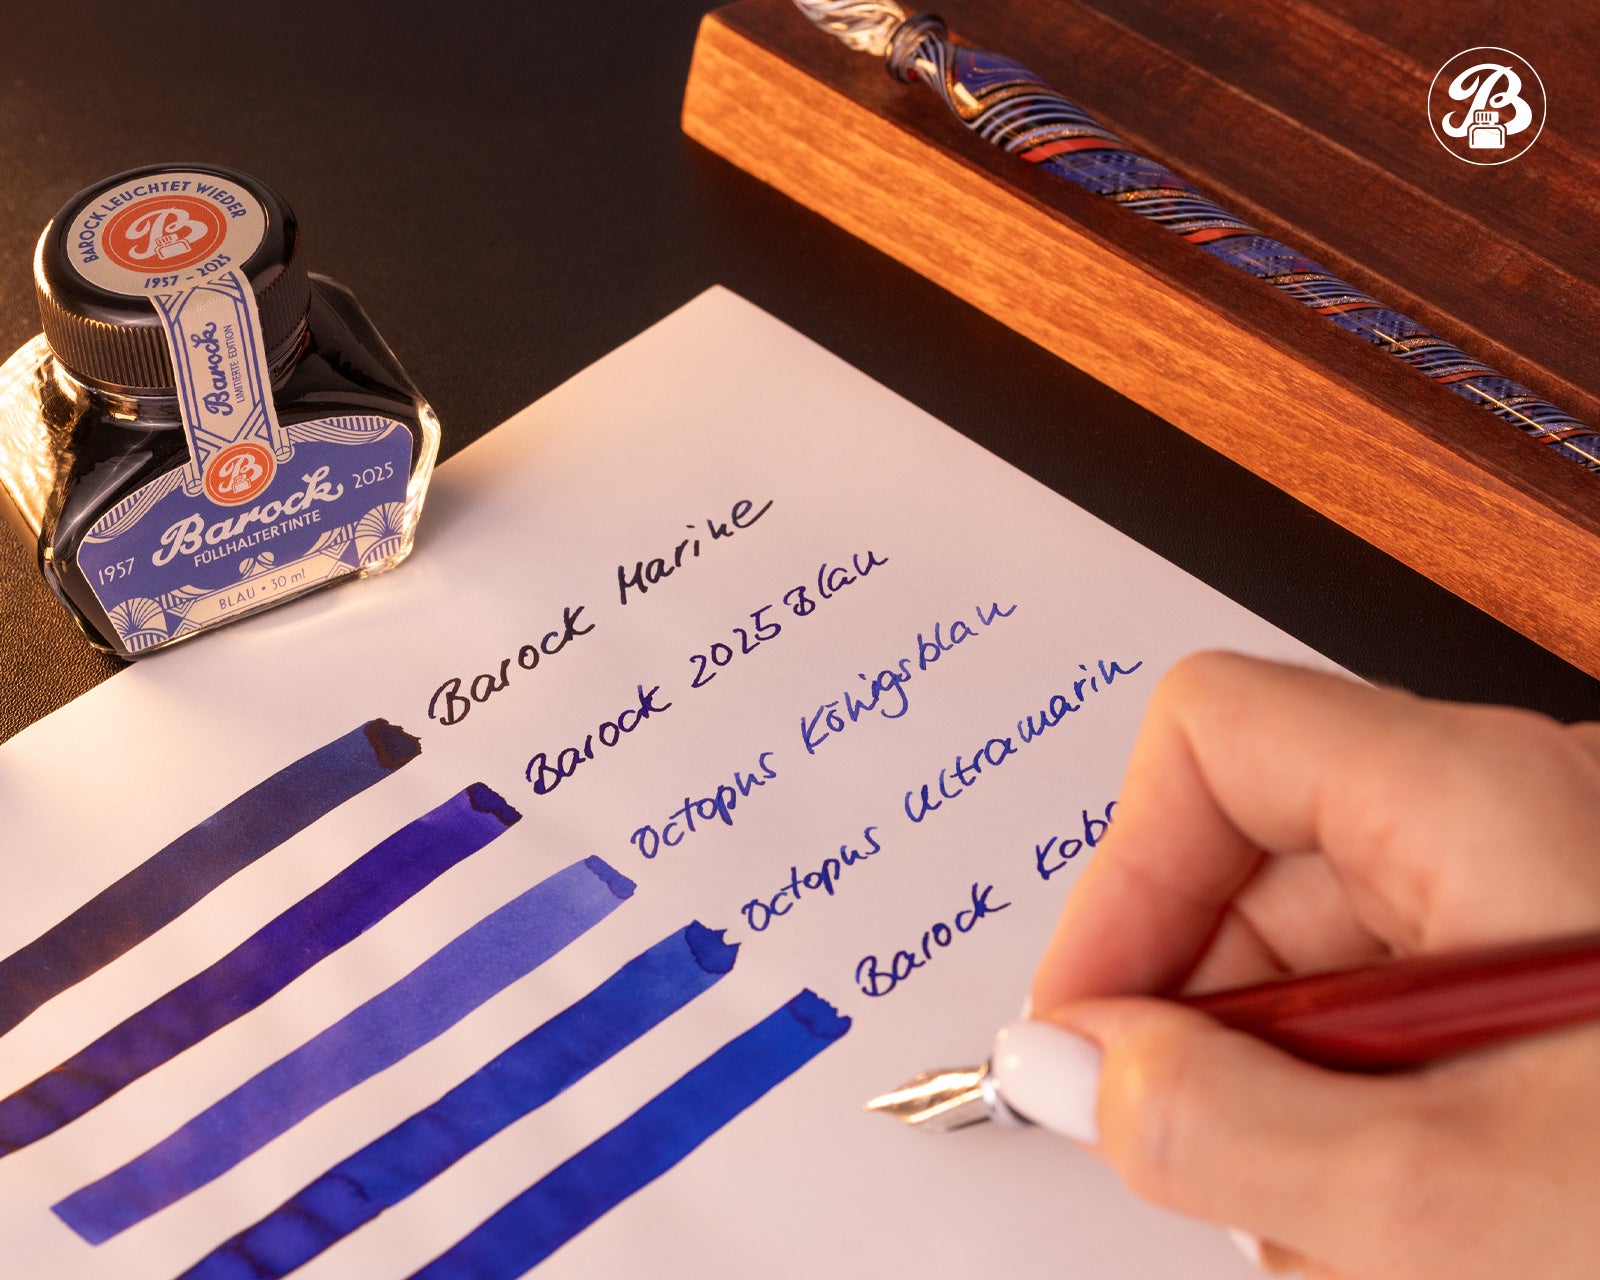 BAROCK LEUCHTET WIEDER
B
1957 - 2025
Barock
LIMITIERTE EDITION
B
1957 Barock 2025
FÜLLHALTERTINTE
BLAU • 30 ml
B
Barock Marine
Barock 2025 Blau
Octopus Königsblau
Octopus Ultramarin
Barock